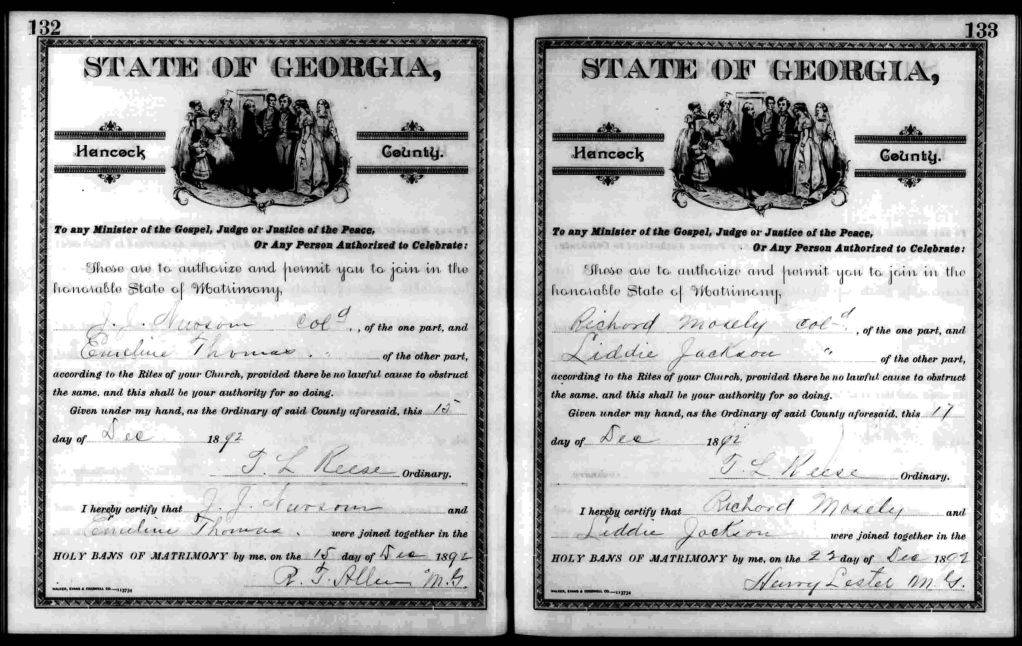 132
STATE OF GEORGIA,
Hancock County.
To any Minister of the Gospel, Judge or Justice of the Peace,
Or Any Person Authorized to Celebrate:
These are to authorize and permit you to join in the
honorable State of Matrimony,
J. J. Newsom Col^d., of the one part, and
Emeline Thomas " of the other part,
according to the Rites of your Church, provided there be no lawful cause to obstruct
the same, and this shall be your authority for so doing.
Given under my hand, as the Ordinary of said County aforesaid, this 15
day of Dec 1892
T. L Reese Ordinary.
I hereby certify that J. J. Newsom and
Emeline Thomas. were joined together in the
HOLY BANS OF MATRIMONY by me, on the 15 day of Dec 1892
R. F. Allen M.G.
WALKER, EVANS & COGSWELL CO.—113734
133
STATE OF GEORGIA,
Hancock County.
To any Minister of the Gospel, Judge or Justice of the Peace,
Or Any Person Authorized to Celebrate:
These are to authorize and permit you to join in the
honorable State of Matrimony,
Richard Mosely Col^d., of the one part, and
Liddie Jackson " of the other part,
according to the Rites of your Church, provided there be no lawful cause to obstruct
the same, and this shall be your authority for so doing.
Given under my hand, as the Ordinary of said County aforesaid, this 17
day of Dec 1892
T. L Reese Ordinary.
I hereby certify that Richard Mosely and
Liddie Jackson were joined together in the
HOLY BANS OF MATRIMONY by me, on the 22 day of Dec 1892
Henry Lester M.G.
WALKER, EVANS & COGSWELL CO.—113734